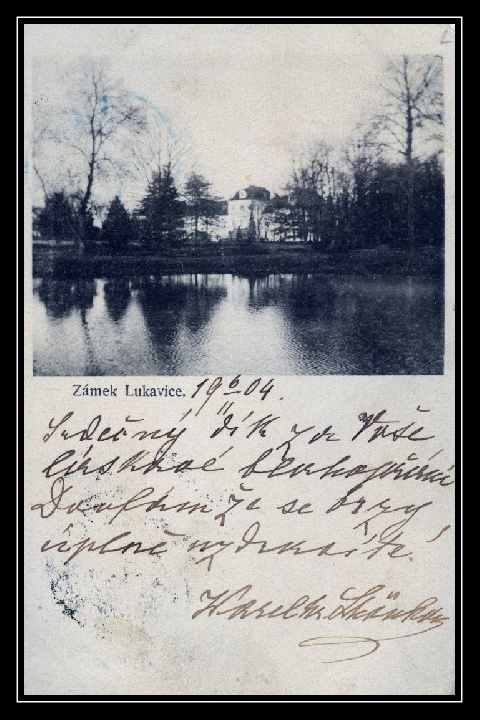 Zámek Lukavice. 19 6/II 04.
Srdečný dík za Vaše
láskavé blahopřání
Doufám že se brzy
úplně
Karel